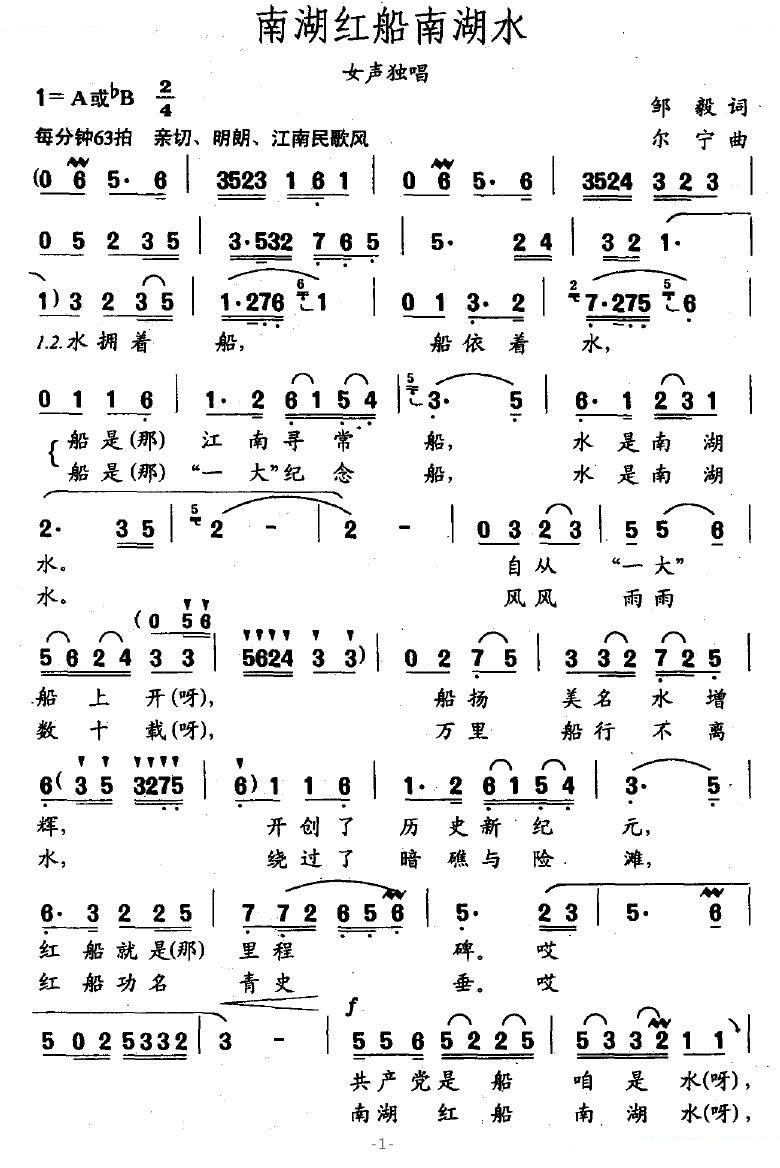 南湖红船南湖水
女声独唱
1=A或♭B 2/4
邹毅词
每分钟63拍 亲切、明朗、江南民歌风
尔宁曲
(0 6 5· 6 | 3523 1 6 1 | 0 6 5· 6 | 3524 3 2 3 |
0 5 2 3 5 | 3·532 7 6 5 | 5· 2 4 | 3 2 1· |
1) 3 2 3 5 | 1·276 6 1 | 0 1 3· 2 | 2 7·275 5 6 |
1.2.水拥着船, 船依着水,
0 1 1 6 | 1· 2 6 1 5 4 | 5 3· 5 | 6· 1 2 3 1 |
船是(那)江南寻常船, 水是南湖
船是(那)“一大”纪念船, 水是南湖
2· 3 5 | 5 2 - | 2 - | 0 3 2 3 | 5 5 6 |
水。 自从“一大”
水。 风风雨雨
(0 5 6
5 6 2 4 3 3 | 5624 3 3) | 0 2 7 5 | 3 3 2 7 2 5 |
船上开(呀), 船扬美名水增
数十载(呀), 万里船行不离
6 (3 5 3275 | 6) 1 1 6 | 1· 2 6 1 5 4 | 3· 5 |
辉, 开创了历史新纪元,
水, 绕过了暗礁与险滩,
6· 3 2 2 5 | 7 7 2 6 5 6 | 5· 2 3 | 5· 6 |
红船就是(那)里程碑。哎
红船功名青史垂。哎
f
5 0 2 5 3 3 2 | 3 - | 5 5 6 5 2 2 5 | 5 3 3 2 1 1 |
共产党是船咱是水(呀),
南湖红船南湖水(呀),
-1-